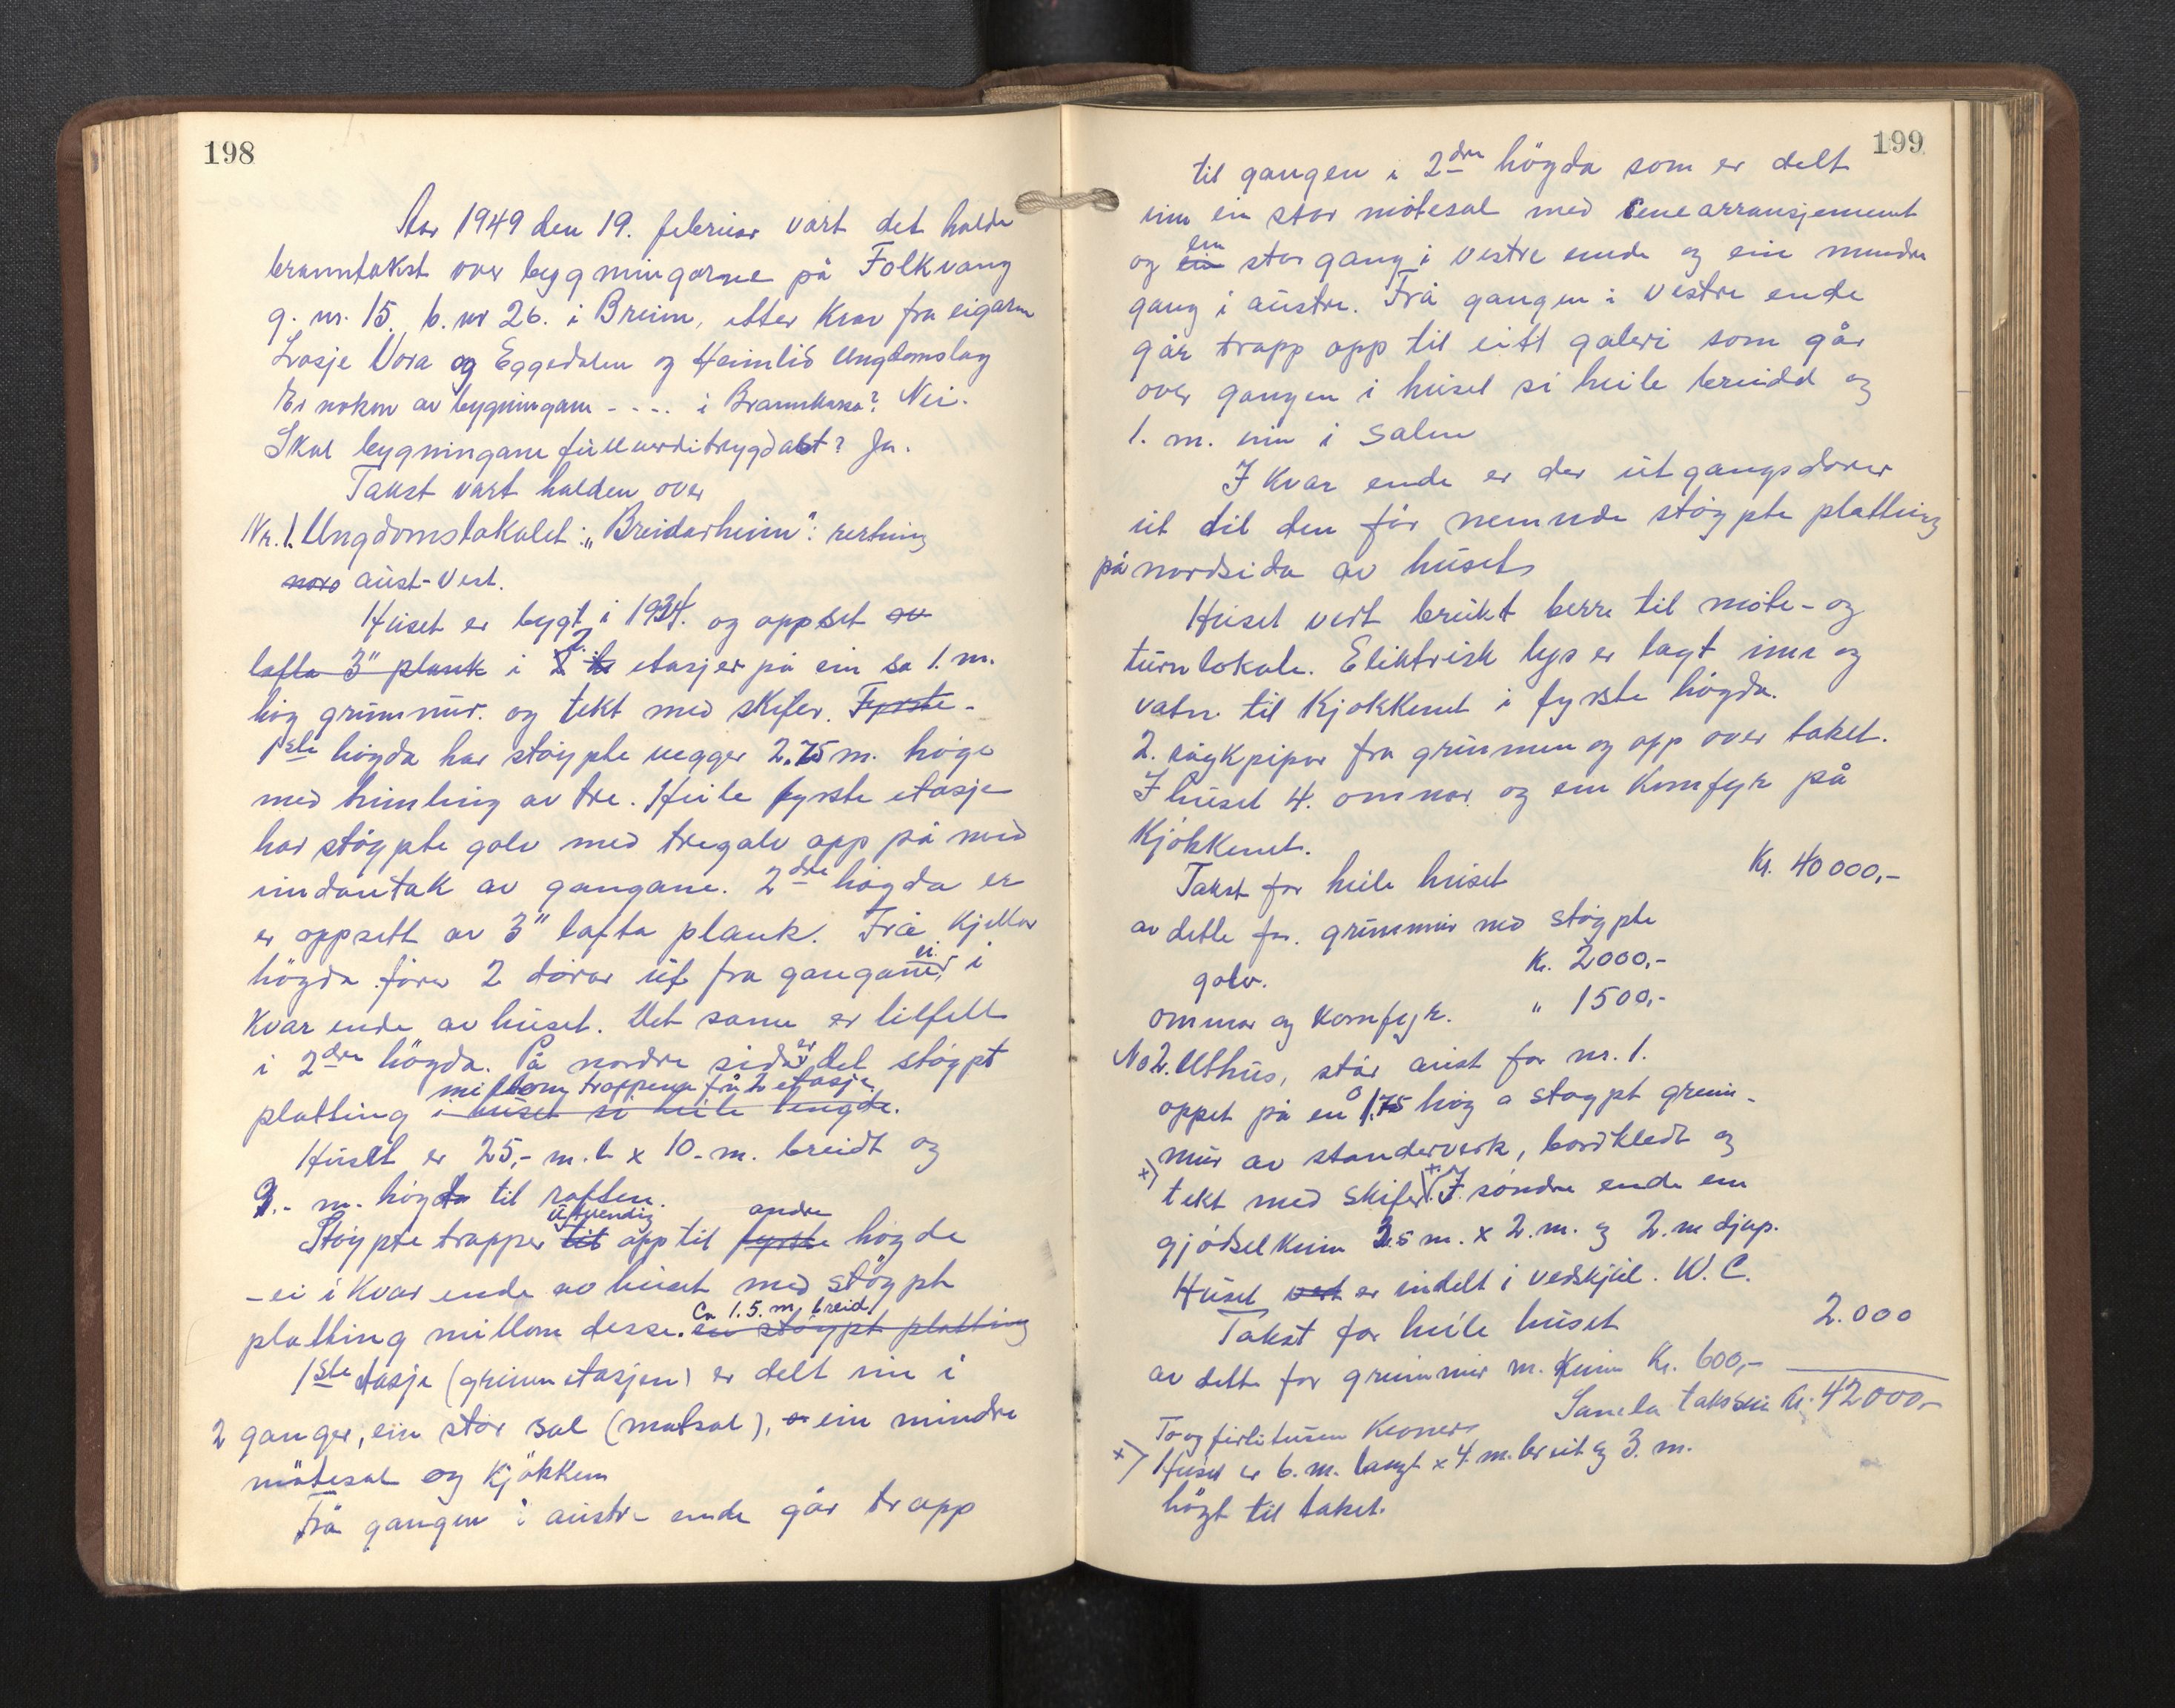 198
Aar 1949 den 19. februar vart det halde
branntakst over bygningarne på Folkvang
g. nr. 15. b. nr 26. i Breim, etter Krav fra eigarne
Losje Vora og Eggedalen og Heimlid Ungdomslag
Er nokon av bygningane - . . . i Brannkassa? Nei.
Skal bygningane fullverditrygdast? Ja.
Takst vart halden over
Nr. 1. Ungdomslokalet: „Breidarheim": retning
nord aust-vest.
Huset er bygt i 1934. og oppsett av
lafta 3" plank i 2. etasjer på ein ca 1. m.
høg grunnmur. og tekt med skifer. Fyrste-
1ste høgda har støypte vegger 2.75 m. høge
med himling av tre. Heile fyrste etasje
har støypte golv med tregolv opp på med
undantak av gangane. 2dre høgda er
er oppsett av 3" lafta plank. Frå Kjellar
høgda fører 2 dørar ut fra gangane, ei i
kvar ende av huset. Det same er tilfelle
i 2dre høgda. På nordre sida er det støypt
millom trappene frå 2 etasje
platting i huset si heile lengde.
Huset er 25,- m. l. x 10.- m. breidt og
9.- m. høgde til raften.
utvendig andre
Støypte trapper til opp til fyrste høgde
- ei i kvar ende av huset med støypt
Ca 1.5. m. breid
platting millom desse. en støypt platting
1ste etasje (grunnetasjen) er delt inn i
2 ganger, ein stor sal (matsal), ein mindre
møtesal og Kjøkken
Frå gangen i austre ende går trapp
199
til gangen i 2dre høgda som er delt
inn ein stor møtesal med senearransjement
og ein stor gang i vestre ende og ein mindre
gang i austre. Frå gangen i vestre ende
går trapp opp til eitt galeri som går
over gangen i huset si heile breidd og
1. m. inn i salen
I kvar ende er der utgangsdører
ut til den før nemnde støypte platting
på nordsida av huset
Huset vert brukt berre til møte- og
turnlokale. Elektrisk lys er lagt inn og
vatn til Kjøkkenet i fyrste høgda.
2. røykpipor fra grunnen og opp over taket.
I huset 4. omnar og ein Komfyr på
Kjøkkenet.
Takst for heile huset Kr. 40 000,-
av dette for. grunnmur med støypte
golv. Kr. 2000,-
omnar og Komfyr. " 1500,-
No 2. Uthus, står aust for nr. 1.
oppet på en 1.75 høg a støypt grunn-
mur av standerverk, bordkledt og
x) tekt med skifer. x) I søndre ende ein
gjødselkum 2.5 m. x 2. m. og 2. m djup.
Huset vert er indelt i vedskjul. W. C.
Takst for heile huset 2.000
av dette for grunnmur m. Kum Kr. 600,-
Samla takssum Kr. 42000,-
To og firti tusen Kroner
x) Huset er 6. m. langt x 4. m. breit og 3. m.
høgt til taket.